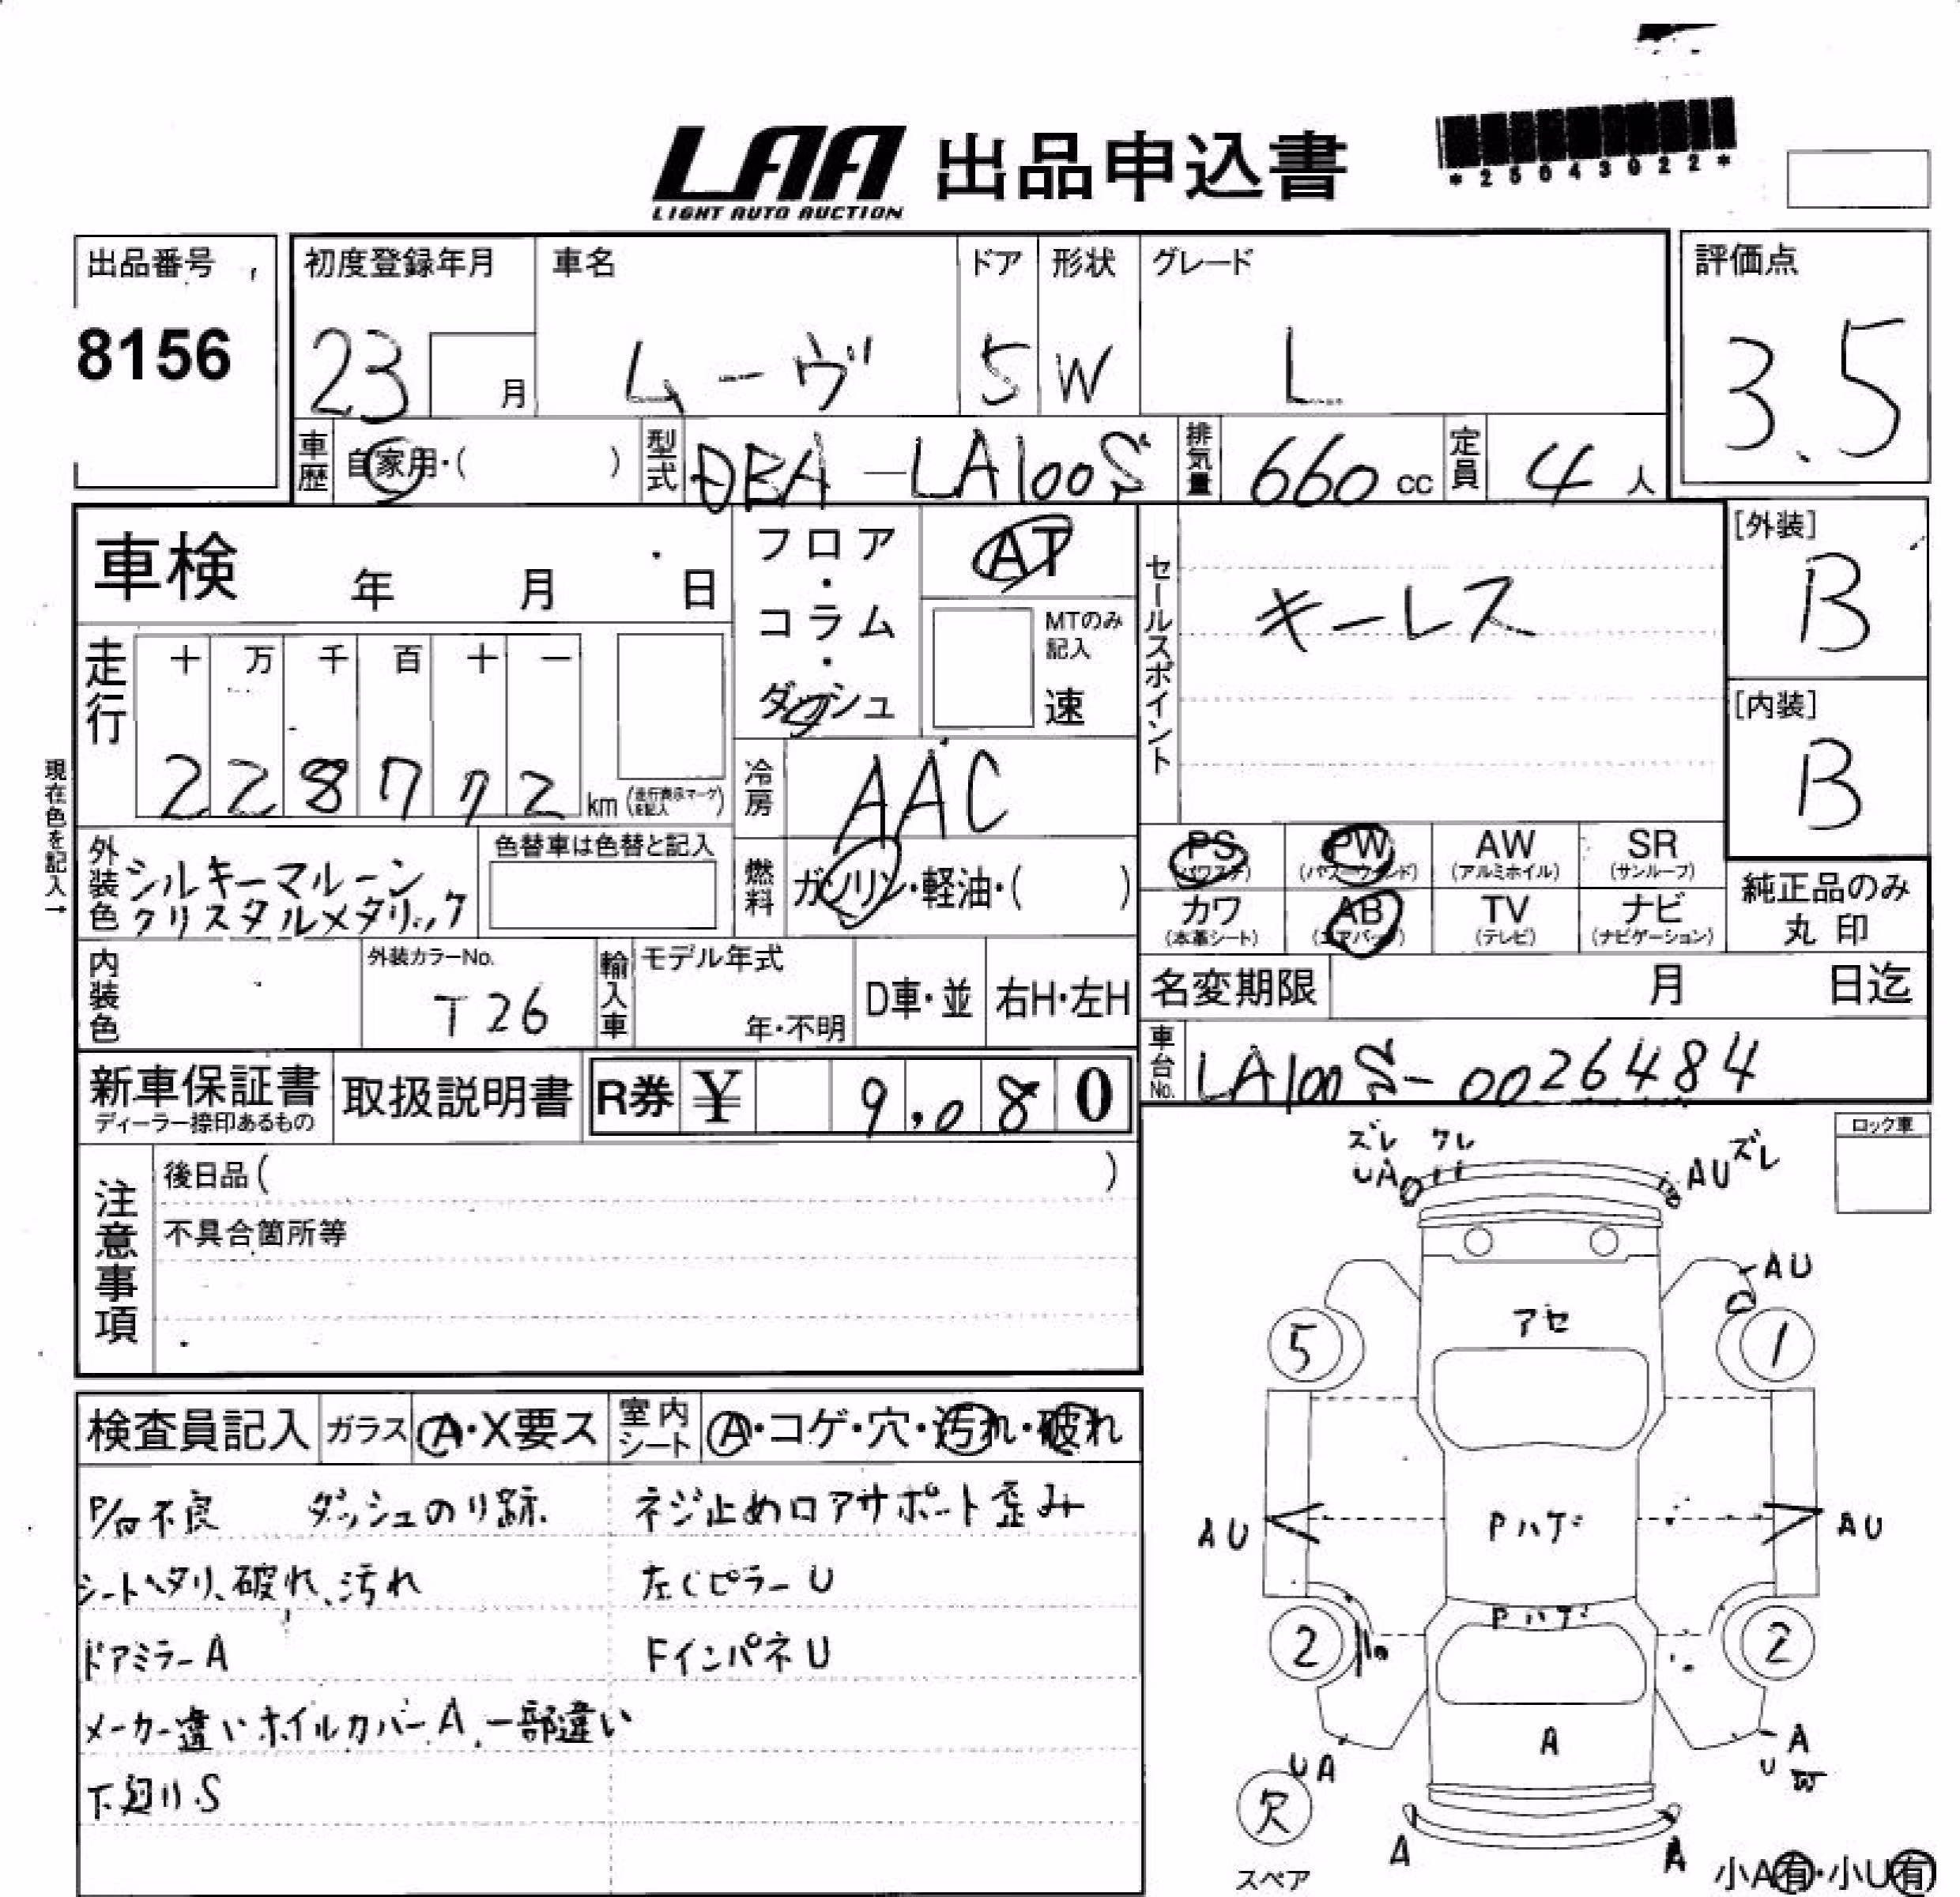 LAA 出品申込書
LIGHT AUTO AUCTION
*25043022*
出品番号
8156
初度登録年月
23
月
車名
ムーヴ
ドア
5
形状
W
グレード
L
評価点
3.5
車歴
自家用・( )
型式
DBA-LA100S
排気量
660 cc
定員
4 人
車検 年 月 日
フロア・コラム・ダッシュ
AT
MTのみ記入
速
セールスポイント
キーレス
[外装]
B
[内装]
B
走行
十 万 千 百 十 一
2 2 8 7 7 2 km (走行表示マークを記入)
冷房
AAC
現在色を記入→
外装色
シルキーマルーン
クリスタルメタリック
色替車は色替と記入
燃料
ガソリン・軽油・( )
PS (パワステ)
PW (パワーウィンド)
AW (アルミホイル)
SR (サンルーフ)
カワ (本革シート)
AB (エアバッグ)
TV (テレビ)
ナビ (ナビゲーション)
純正品のみ
丸印
内装色
外装カラーNo.
T26
輸入車
モデル年式
年・不明
D車・並
右H・左H
名変期限 月 日迄
車台No.
LA100S-0026484
新車保証書
ディーラー捺印あるもの
取扱説明書
R券 ¥ 9,080
注意事項
後日品( )
不具合箇所等
ロック車
ズレ ワレ
UA
AU ズレ
AU
アセ
5
1
AU
Pハゲ
AU
Pハゲ
2
2
UA
A
A
U W
欠
スペア
A
A
小A有・小U有
検査員記入
ガラス
A・X要ス
室内シート
A・コゲ・穴・汚れ・破れ
ダッシュのり跡
ネジ止めロアサポート歪み
シートヘタリ、破れ、汚れ
左Cピラー U
ドアミラー A
FインパネU
メーカー違いホイルカバーA 一部違い
下廻り.S